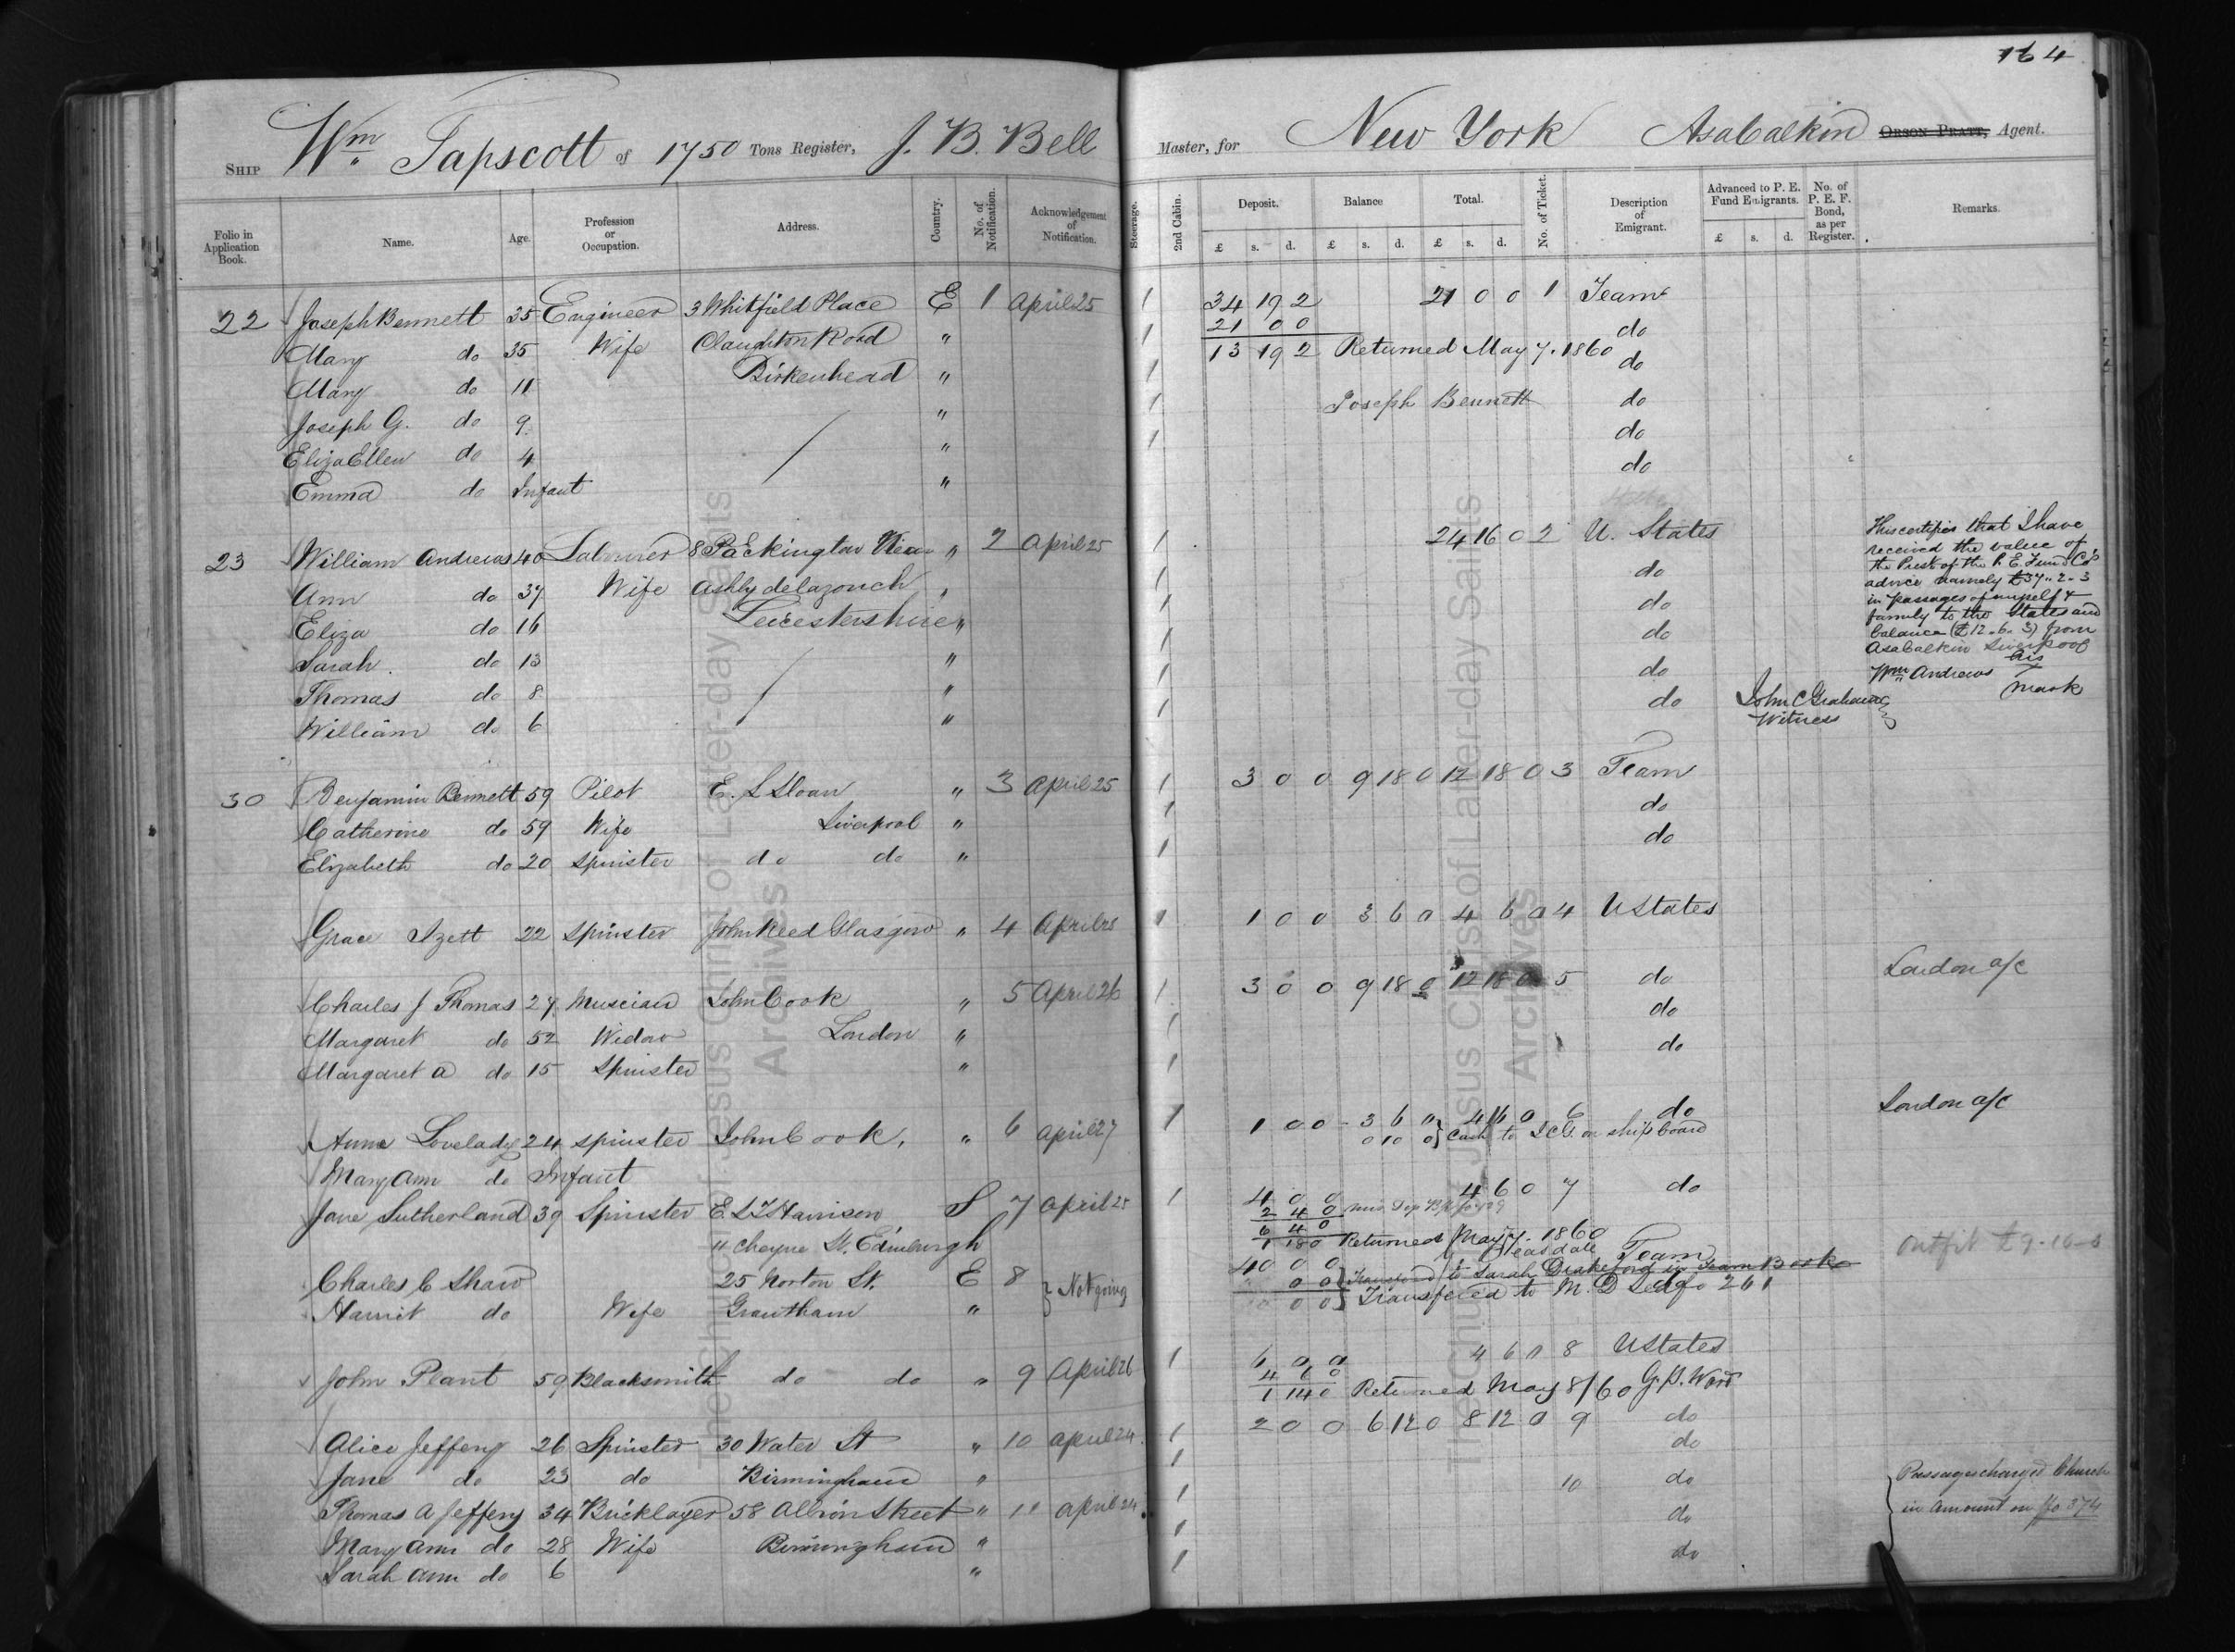 164
Ship Wm. Tapscott of 1750 Tons Register, J. B. Bell Master, for New York Asa Calkin Orson Pratt, Agent.
Folio in Application Book. Name. Age. Profession or Occupation. Address. Country. No. of Notification. Acknowledgement of Notification. Steerage. 2nd Cabin. Deposit. Balance Total. No. of Ticket. Description of Emigrant. Advanced to P. E. Fund Emigrants. No. of P. E. F. Bond, as per Register. Remarks.
£ s. d. £ s. d. £ s. d. £ s. d.
22 Joseph Bennett 35 Engineer 3 Whitfield Place E 1 April 25 1 34 19 2 21 0 0 1 Team
21 0 0
Mary do 35 Wife Claughton Road " 1 13 19 2 Returned May 7. 1860 do
Mary do 11 Birkenhead " 1 do
Joseph G. do 9 " 1 Joseph Bennett do
Eliza Ellen do 4 " 1 do
Emma do Infant " do
23 William Andrews 40 Labourer 8 Packington " 2 April 25 1 24 16 0 2 U. States
Ann do 37 Wife Ashby de la zouch 1 do
Eliza do 16 Leicestershire " 1 do
Sarah do 13 " 1 do
Thomas do 8 " 1 do
William do 6 " 1 do
This certifies that I have
received the value of
the Prest of the P. E. Fund Co's
advice namely £37-2-3
in passages of myself &
family to the States and
balance (£12.6.3) from
Asa Calkin Liverpool
Wm Andrews his
mark
John C Graham
Witness
30 Benjamin Bennett 59 Pilot E. L Sloan " 3 April 25 1 3 0 0 9 18 0 12 18 0 3 Team
Catherine do 59 Wife Liverpool " 1 do
Elizabeth do 20 Spinster do do " 1 do
Grace Izett 22 Spinster John Reed Glasgow " 4 April 25 1 1 0 0 3 6 0 4 6 0 4 U States
Charles J Thomas 27 Muscian John Cook " 5 April 26 1 3 0 0 9 18 0 12 18 0 5 do London a/c
Margaret do 52 Widow London " 1 do
Margaret A do 15 Spinster " 1 do
Anna Lovelady 24 Spinster John Cook, " 6 April 27 1 1 0 0 3 6 0 4 16 0 6 do London a/c
0 10 0 } Cash to J C G. on ship board
Mary Ann do Infant
Jane Sutherland 39 Spinster E. L T Harrison S 7 April 25 1 4 0 0 4 6 0 7 do
2 4 0
6 4 0
11 Cheyne St. Edinburgh 1 18 0 Returned May 7. 1860
Team Outfit £9-16-
Charles C Shaw 25 Norton St. E 8 } Not going 40 0 0
Transferred to Sarah Drakeford in Team Book
Harriet do Wife Grantham " Transfered to M. D Ledg fo 261
John Plant 59 Blacksmith do do " 9 April 26 1 6 0 0 4 6 0 8 U States
4 6 0
1 14 0 Returned May 8/60 G. P. Ward
Alice Jeffery 26 Spinster 30 Water St " 10 April 24 1 2 0 0 6 12 0 8 12 0 9 do
Jane do 23 do Birmingham " 1 do
Thomas A Jeffery 34 Bricklayer 58 Albion Street " 11 April 24 1 10 do
Mary Ann do 28 Wife Birmingham " 1 do
Sarah Ann do 6 " 1 do
Passages charged Church
in Amount on fo 374
The Church of Jesus Christ of Latter-day Saints
Archives
The Church of Jesus Christ of Latter-day Saints
Archives